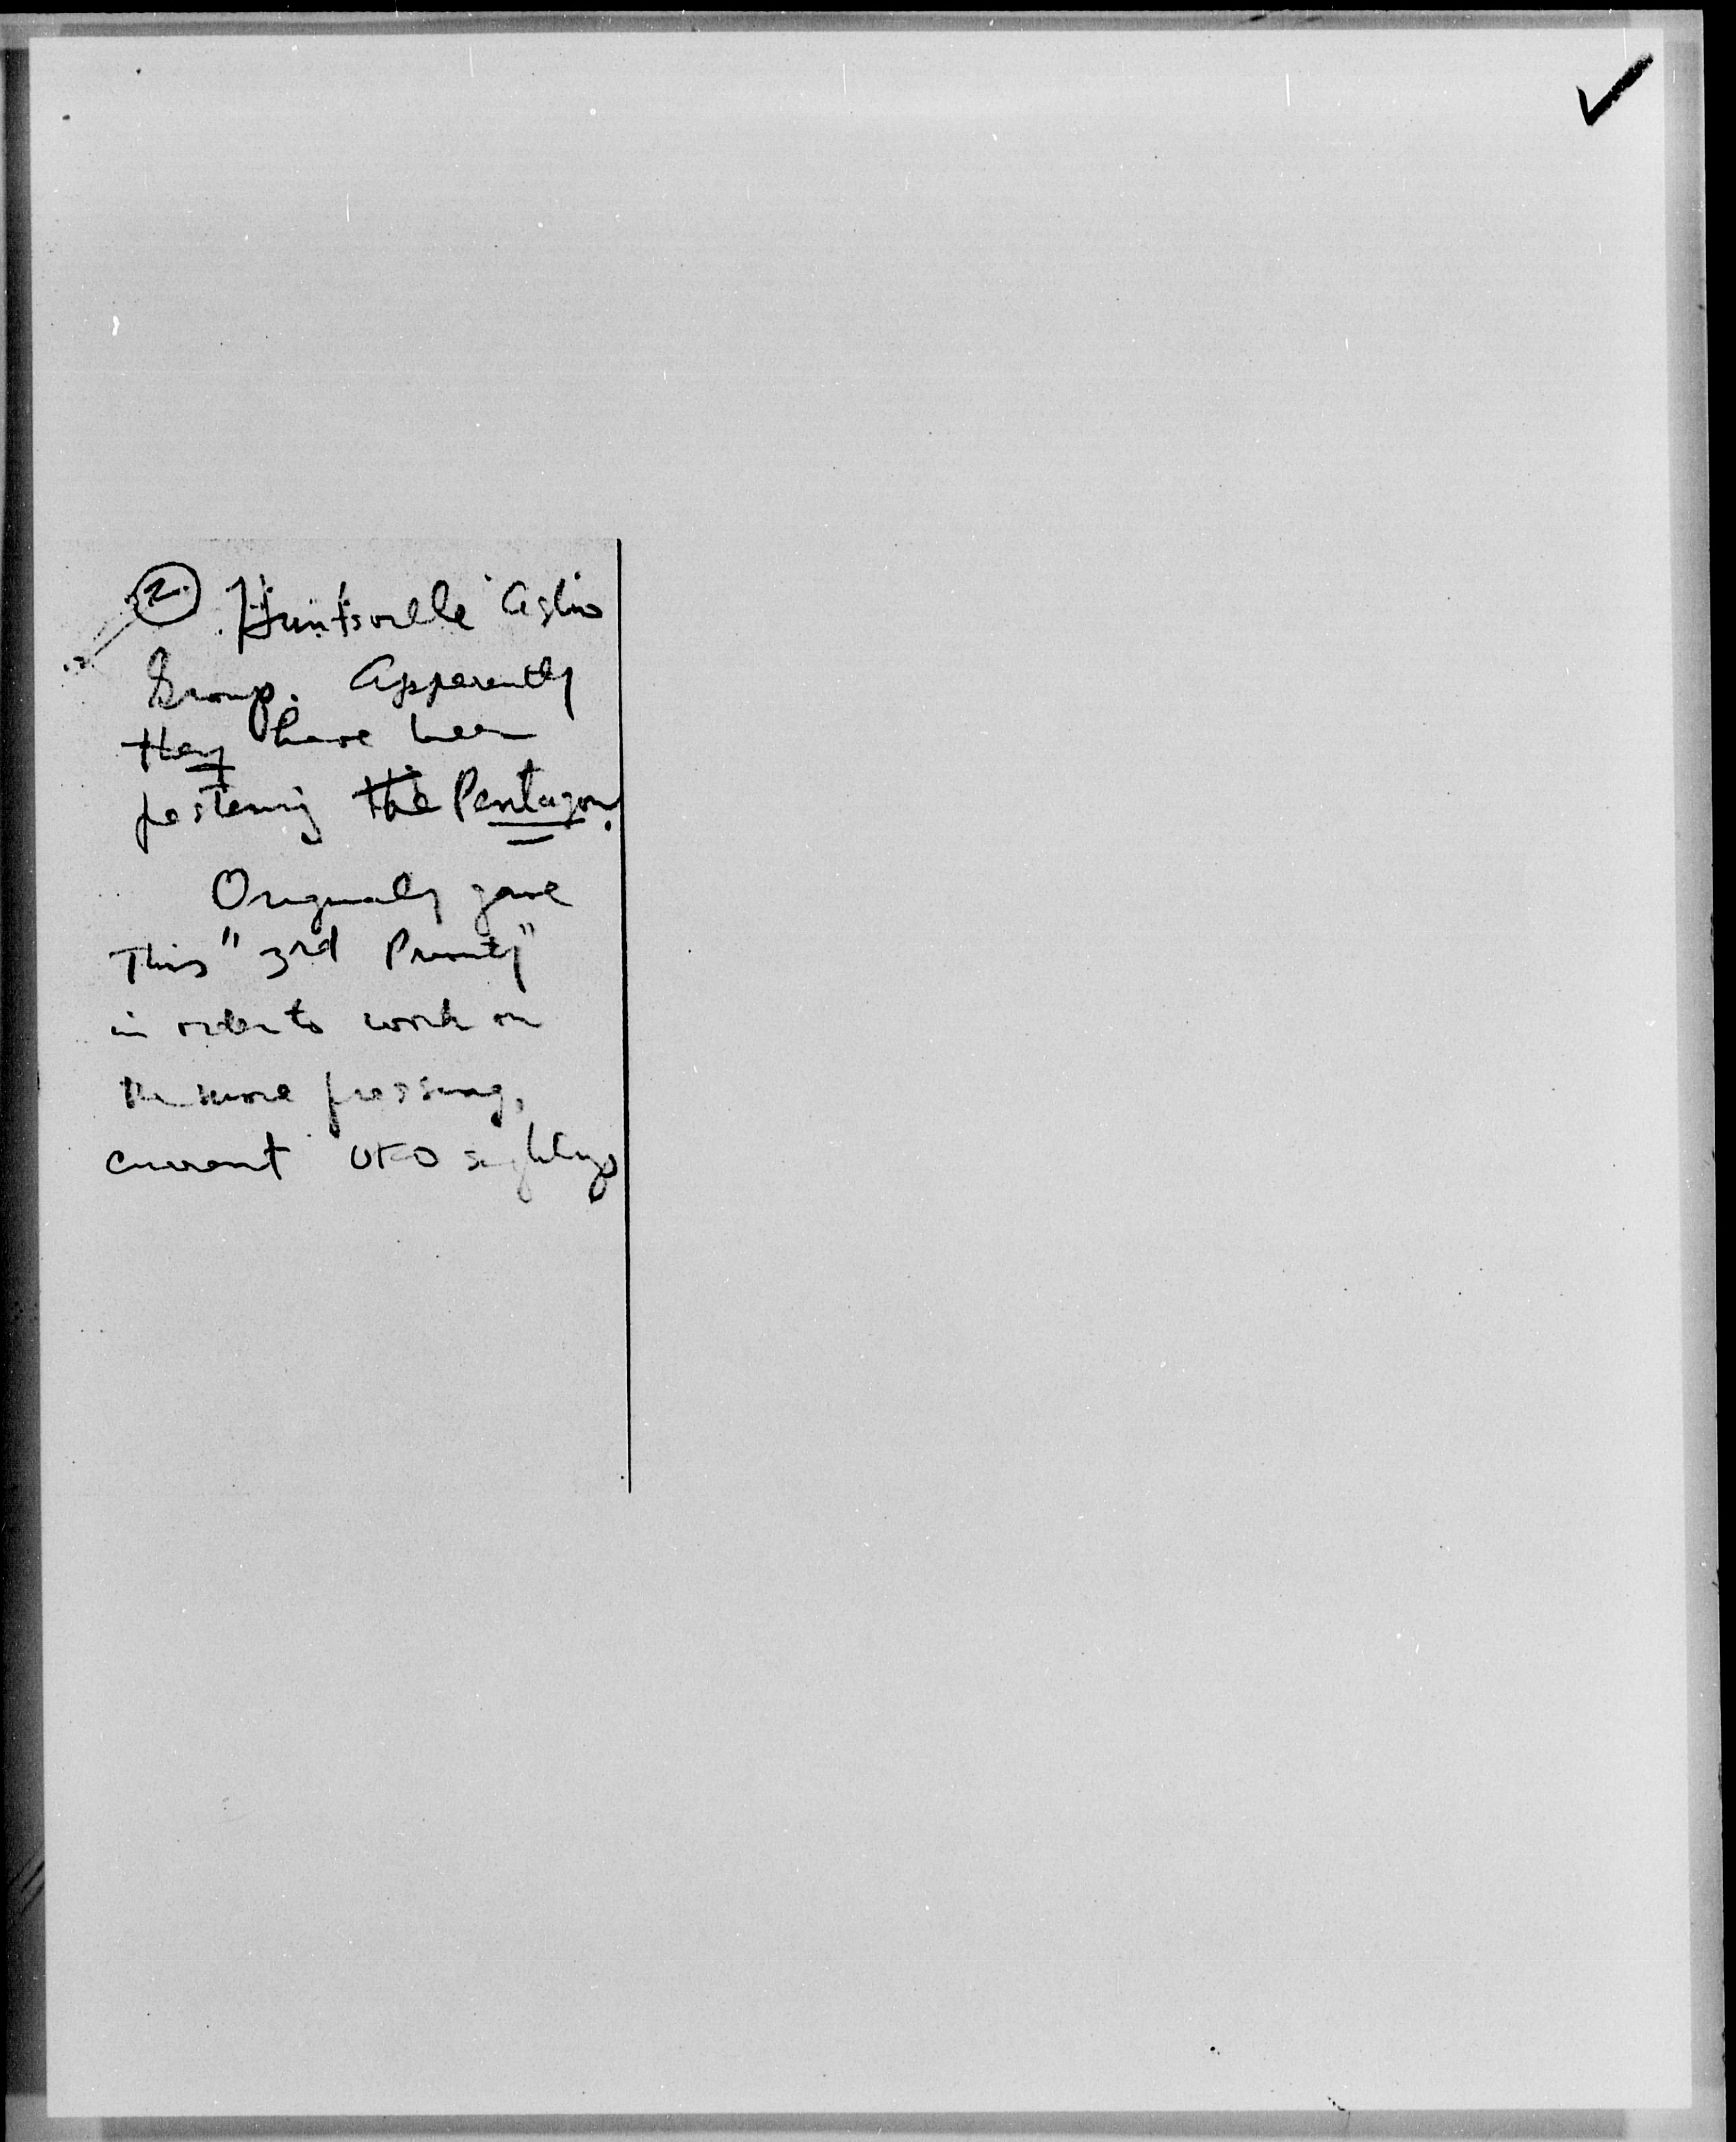 2. Huntsville Astro
Group. Apparently
they have been
pestering the Pentagon.
Originally gave
This "3rd Priority"
in order to work on
the more pressing,
current UFO sightings